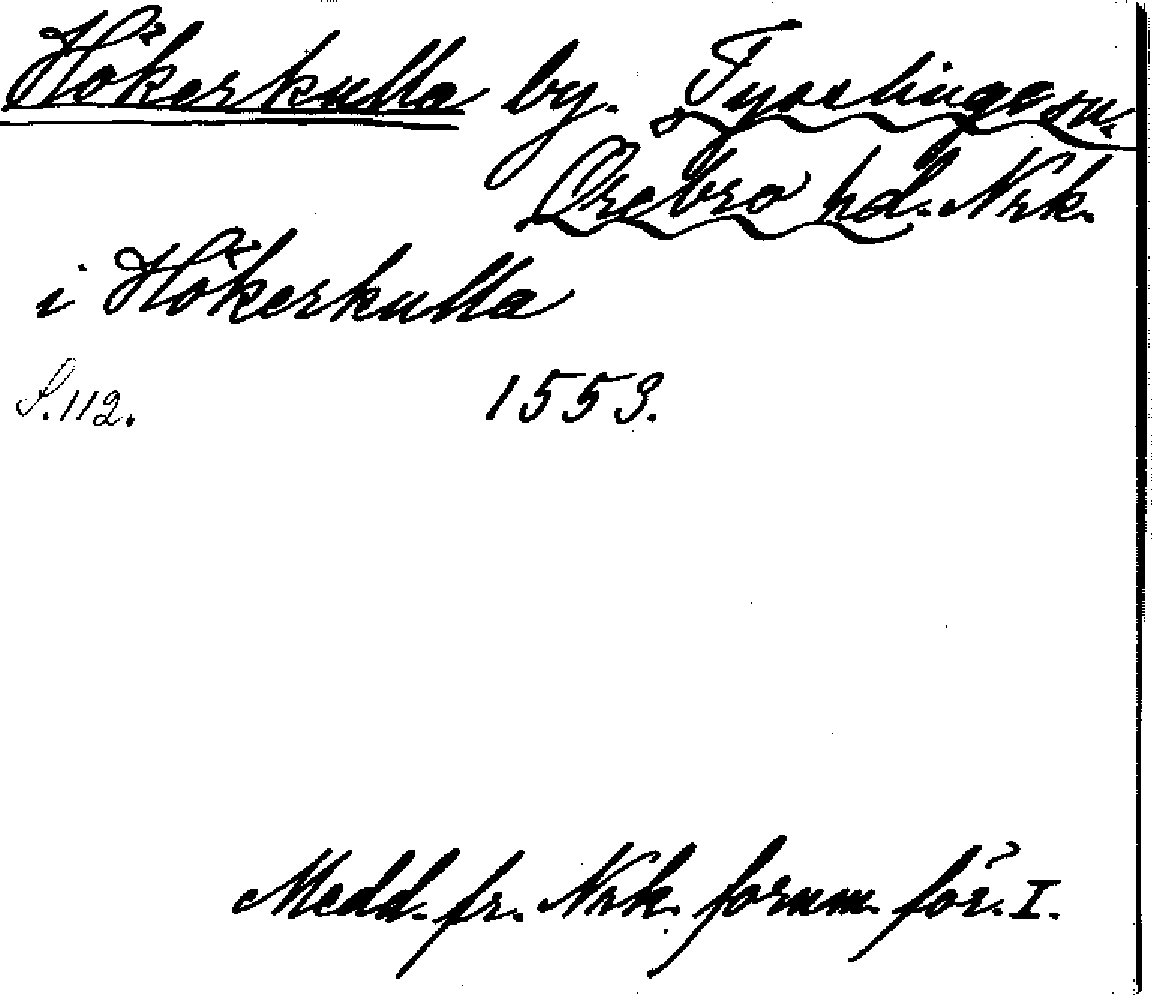 Hökerkulla by. Tysslinge sn.
Örebro hd. Nrk.
i Hökerkulla
S. 112. 1553.
Medd. fr. Nrk. fornm. för. I.